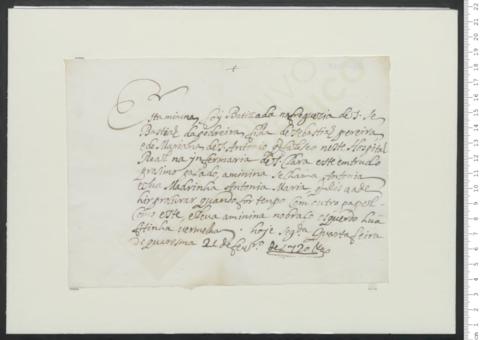 Esta minina foy Batizada na freguezia de S. Se
Bastiaõ da pedreira filha de sebastiaõ pereira
e de Mariana de S. Antonio neste Hospital
Real na ynfermaria de S. Clara este entrudo
prasimo pasado, aminina se chama Antonia
e sua Madrinha Antonia Maria q a de
hir procurar quando for tenpo Com outro papel
Como este, e leva aminina no braso esquerdo huã
fitinha vermelha. hoje segda Quarta feira
De quaresma 21 de fevro. de 1720